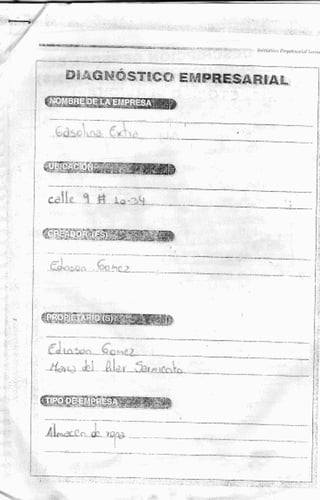 Iniciativa Empresarial
DIAGNÓSTICO EMPRESARIAL
NOMBRE DE LA EMPRESA
Gasolina Extra
UBICACIÓN
calle 9 # 20-34
CREADOR (ES)
Edinson Gomez
PROPIETARIO (S)
Edinson Gomez
Maria del Pilar Sarmiento
TIPO DE EMPRESA
Almacén de ropa